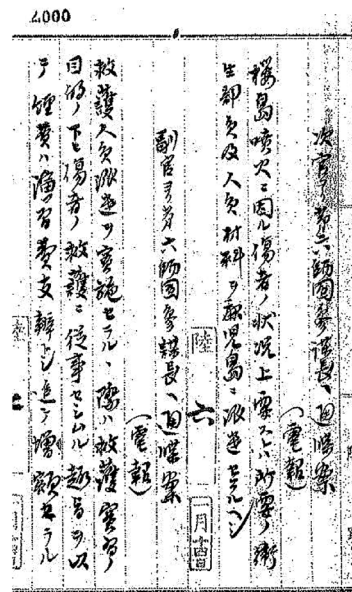 2,000
次官ヨリ第六師団参謀長ヘ通牒案
(電報)
桜島噴火ニ因ル傷者ノ状況上必要ナレハ所要ノ衛
生部員及人員材料ヲ鹿児島ニ派遣セラルヘシ
陸
六
一月十四日
副官ヨリ第六師団参謀長ヘ通牒案
(電報)
救護人員派遣ヲ実施セラルヽ際ハ救護実習ノ
目的ノ下ニ傷者ノ救護ニ従事セシムル趣旨ヲ以
テ経費ハ演習費支辨トシ追テ増額セラル